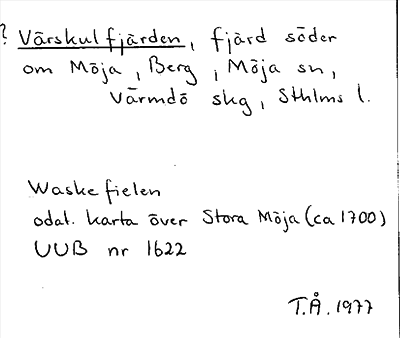 ? Värskulfjärden, fjärd söder
om Möja, Berg, Möja sn,
Värmdö skg, Sthlms l.
Waske fielen
odat. karta över Stora Möja (ca 1700)
UUB nr 1622
T.Å. 1977